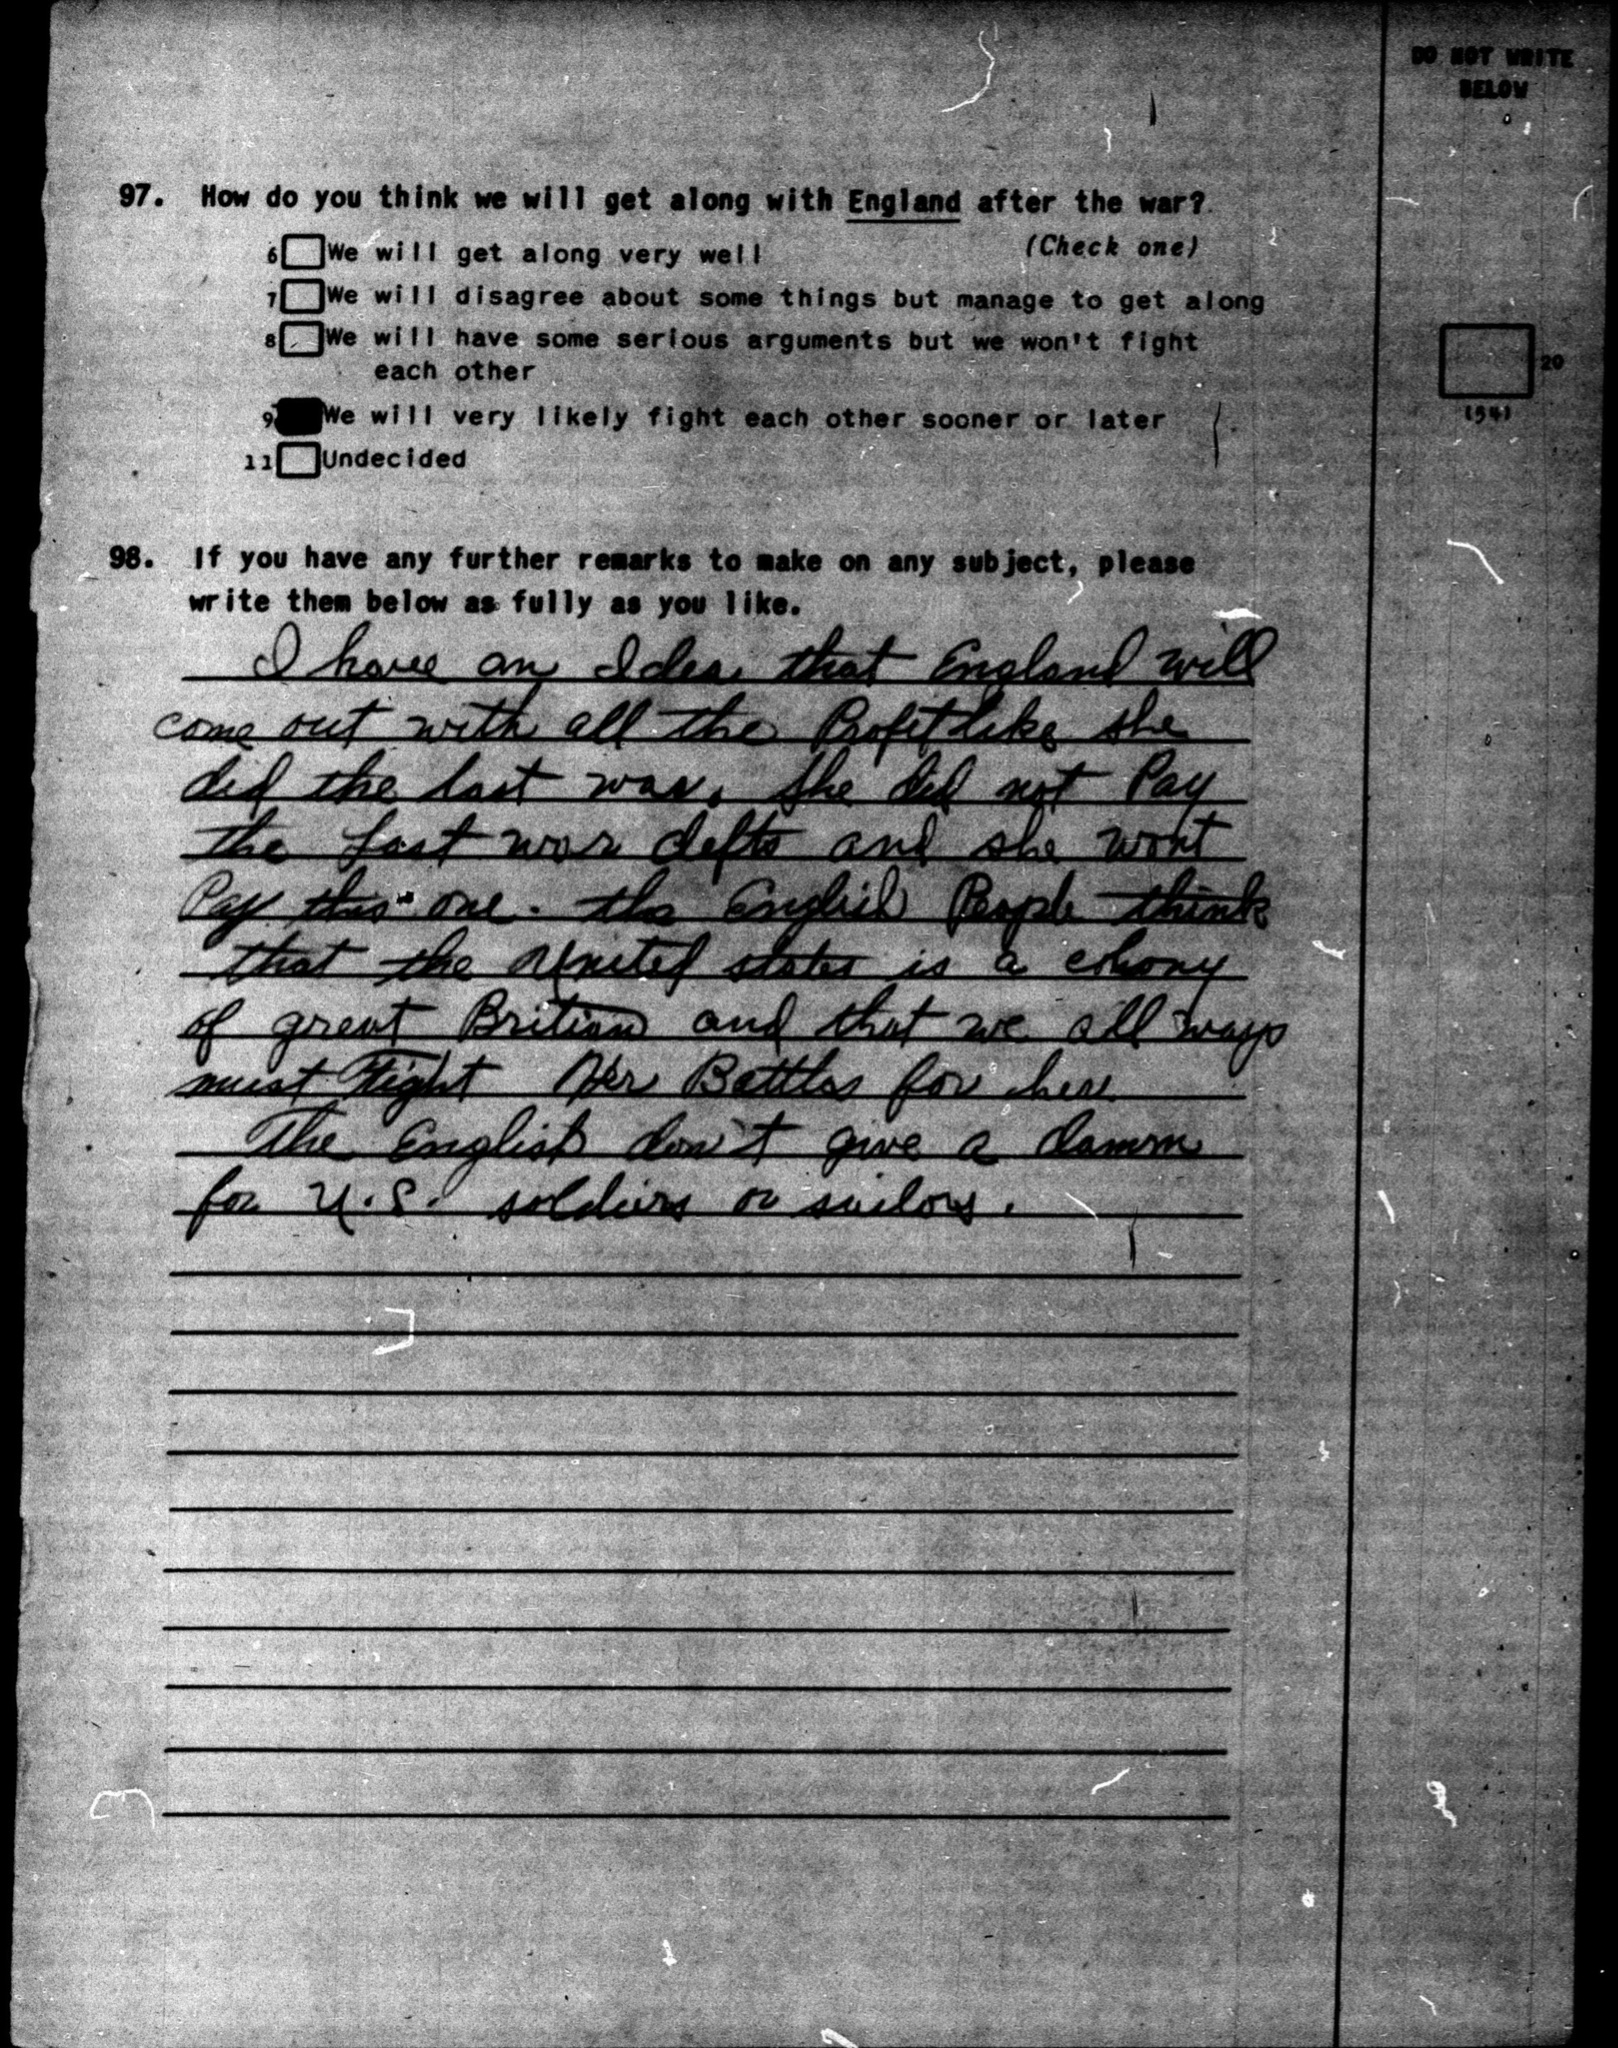 DO NOT WRITE
BELOW
97. How do you think we will get along with England after the war?
(Check one)
6 We will get along very well
7 We will disagree about some things but manage to get along
8 We will have some serious arguments but we won't fight
each other
9 We will very likely fight each other sooner or later
11 Undecided
20
(54)
98. If you have any further remarks to make on any subject, please
write them below as fully as you like.
I have an Idea that England will
come out with all the Profit like she
did the last war. She did not Pay
the last war defts and she wont
Pay this one. the English People think
that the United states is a colony
of great Britian and that we all ways
must Fight Her Battles for her
The English don't give a damm
for U.S. soldiers or sailors.